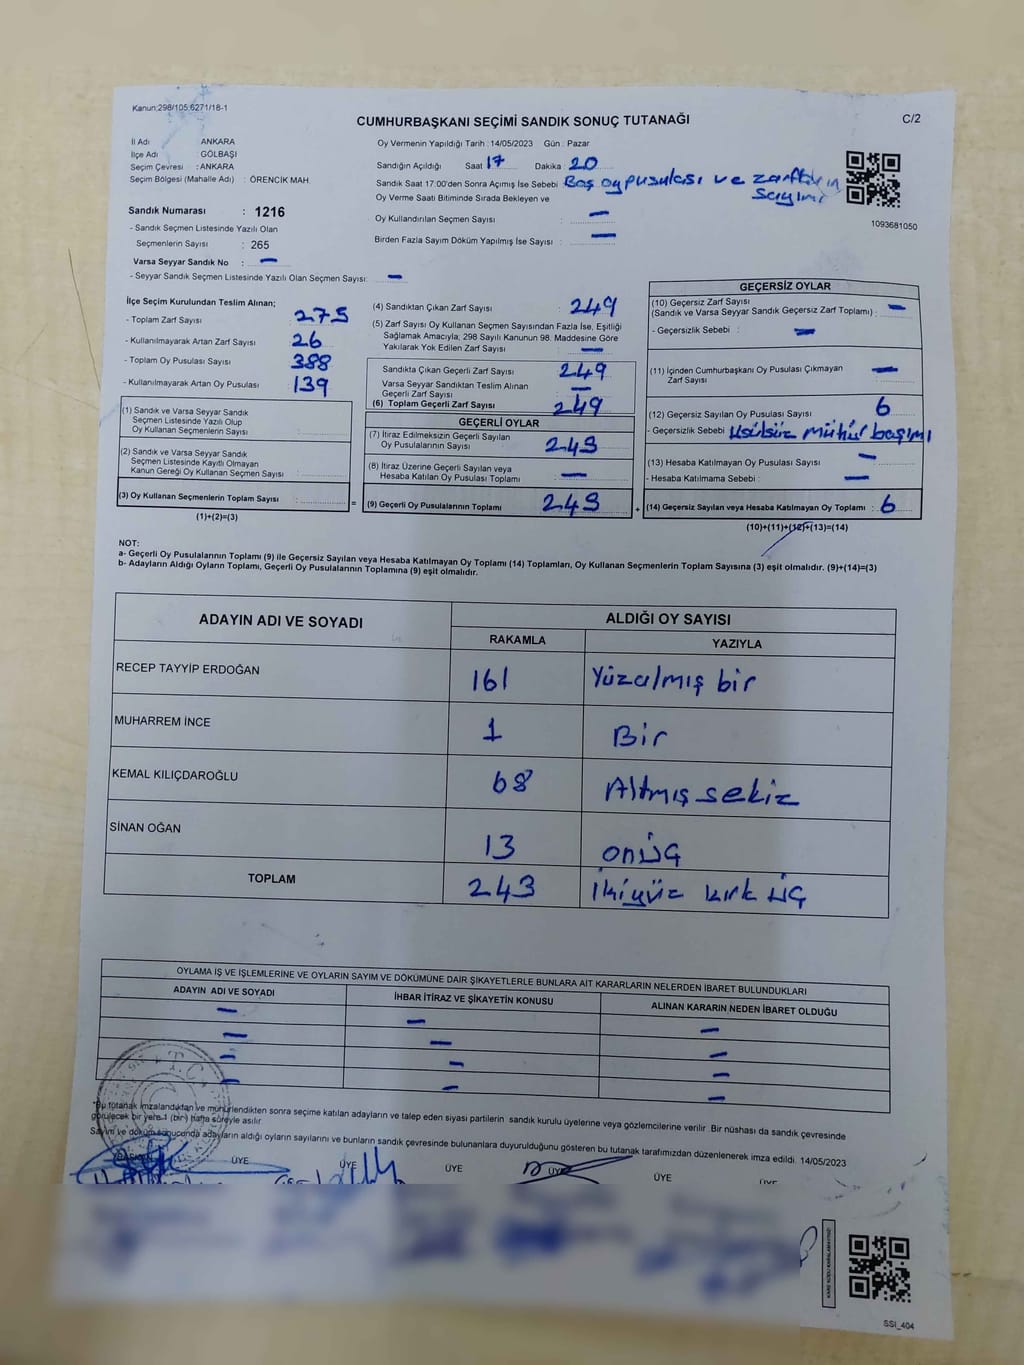 Kanun:298/105:6271/18-1
C/2
CUMHURBAŞKANI SEÇİMİ SANDIK SONUÇ TUTANAĞI
İl Adı ANKARA
İlçe Adı GÖLBAŞI
Seçim Çevresi : ANKARA
Seçim Bölgesi (Mahalle Adı) : ÖRENCİK MAH.
Sandık Numarası : 1216
- Sandık Seçmen Listesinde Yazılı Olan
Seçmenlerin Sayısı : 265
Varsa Seyyar Sandık No : —
- Seyyar Sandık Seçmen Listesinde Yazılı Olan Seçmen Sayısı: —
Oy Vermenin Yapıldığı Tarih : 14/05/2023 Gün : Pazar
Sandığın Açıldığı Saat 17 Dakika : 20
Sandık Saat 17:00'den Sonra Açımış İse Sebebi : Boş oy pusulası ve zarfların sayımı
Oy Verme Saati Bitiminde Sırada Bekleyen ve
Oy Kullandırılan Seçmen Sayısı : —
Birden Fazla Sayım Döküm Yapılmış İse Sayısı : —
1093681050
İlçe Seçim Kurulundan Teslim Alınan;
- Toplam Zarf Sayısı : 275
- Kullanılmayarak Artan Zarf Sayısı : 26
- Toplam Oy Pusulası Sayısı : 388
- Kullanılmayarak Artan Oy Pusulası : 139
(1) Sandık ve Varsa Seyyar Sandık
Seçmen Listesinde Yazılı Olup
Oy Kullanan Seçmenlerin Sayısı :
(2) Sandık ve Varsa Seyyar Sandık
Seçmen Listesinde Kayıtlı Olmayan
Kanun Gereği Oy Kullanan Seçmen Sayısı :
(3) Oy Kullanan Seçmenlerin Toplam Sayısı :
(1)+(2)=(3)
(4) Sandıktan Çıkan Zarf Sayısı : 249
(5) Zarf Sayısı Oy Kullanan Seçmen Sayısından Fazla İse, Eşitliği
Sağlamak Amacıyla; 298 Sayılı Kanunun 98. Maddesine Göre
Yakılarak Yok Edilen Zarf Sayısı : —
Sandıkta Çıkan Geçerli Zarf Sayısı : 249
Varsa Seyyar Sandıktan Teslim Alınan
Geçerli Zarf Sayısı : —
(6) Toplam Geçerli Zarf Sayısı : 249
GEÇERLİ OYLAR
(7) İtiraz Edilmeksizin Geçerli Sayılan
Oy Pusulalarının Sayısı : 243
(8) İtiraz Üzerine Geçerli Sayılan veya
Hesaba Katılan Oy Pusulası Toplamı : —
= (9) Geçerli Oy Pusulalarının Toplamı : 243 +
GEÇERSİZ OYLAR
(10) Geçersiz Zarf Sayısı
(Sandık ve Varsa Seyyar Sandık Geçersiz Zarf Toplamı) : —
- Geçersizlik Sebebi : —
(11) İçinden Cumhurbaşkanı Oy Pusulası Çıkmayan
Zarf Sayısı : —
(12) Geçersiz Sayılan Oy Pusulası Sayısı : 6
- Geçersizlik Sebebi : Usülsüz mühür basımı
(13) Hesaba Katılmayan Oy Pusulası Sayısı : —
- Hesaba Katılmama Sebebi : —
(14) Geçersiz Sayılan veya Hesaba Katılmayan Oy Toplamı : 6
(10)+(11)+(12)+(13)=(14)
NOT:
a- Geçerli Oy Pusulalarının Toplamı (9) ile Geçersiz Sayılan veya Hesaba Katılmayan Oy Toplamı (14) Toplamları, Oy Kullanan Seçmenlerin Toplam Sayısına (3) eşit olmalıdır. (9)+(14)=(3)
b- Adayların Aldığı Oyların Toplamı, Geçerli Oy Pusulalarının Toplamına (9) eşit olmalıdır.
ADAYIN ADI VE SOYADI ALDIĞI OY SAYISI
RAKAMLA YAZIYLA
RECEP TAYYİP ERDOĞAN 161 Yüzaltmış bir
MUHARREM İNCE 1 Bir
KEMAL KILIÇDAROĞLU 68 Altmış sekiz
SİNAN OĞAN 13 onüç
TOPLAM 243 İkiyüz kırk üç
OYLAMA İŞ VE İŞLEMLERİNE VE OYLARIN SAYIM VE DÖKÜMÜNE DAİR ŞİKAYETLERLE BUNLARA AİT KARARLARIN NELERDEN İBARET BULUNDUKLARI
ADAYIN ADI VE SOYADI İHBAR İTİRAZ VE ŞİKAYETİN KONUSU ALINAN KARARIN NEDEN İBARET OLDUĞU
— — —
— — —
— — —
— — —
*Bu tutanak imzalandıktan ve mühürlendikten sonra seçime katılan adayların ve talep eden siyasi partilerin sandık kurulu üyelerine veya gözlemcilerine verilir. Bir nüshası da sandık çevresinde
görülecek bir yere 1 (bir) hafta süreyle asılır.
Sayım ve döküm sonucunda adayların aldığı oyların sayılarını ve bunların sandık çevresinde bulunanlara duyurulduğunu gösteren bu tutanak tarafımızdan düzenlenerek imza edildi. 14/05/2023
T.C.
BAŞKAN ÜYE ÜYE ÜYE ÜYE ÜYE ÜYE
SSİ_404